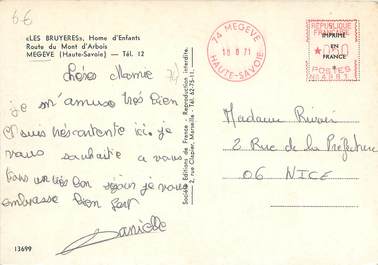 6€
«LES BRUYERES», Home d'Enfants
Route du Mont d'Arbois
MEGEVE (Haute-Savoie) — Tél. 12
74 MEGEVE
18-8 71
HAUTE-SAVOIE
REPUBLIQUE
FRANÇAISE
IMPRIMÉ
EN
FRANCE
POSTES
Chère Mamie
je m'amuse très bien
et suis très contente ici. je
vous souhaite a vous
tous un très bon séjour je vous
embrasse bien fort
Danielle
13699
Société Editions de France - Reproduction interdite.
2, rue Clapier, Marseille - Tél. 62-75-11.
Madame
2 Rue de la Préfecture
06 NICE